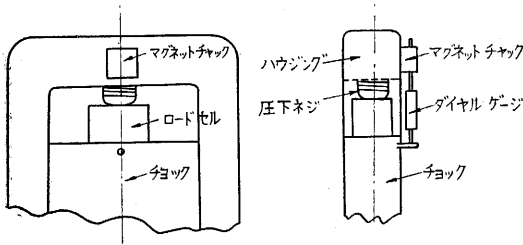 マグネットチャック
ロードセル
チョック
ハウジング
圧下ネジ
マグネットチャック
ダイヤルゲージ
チョック